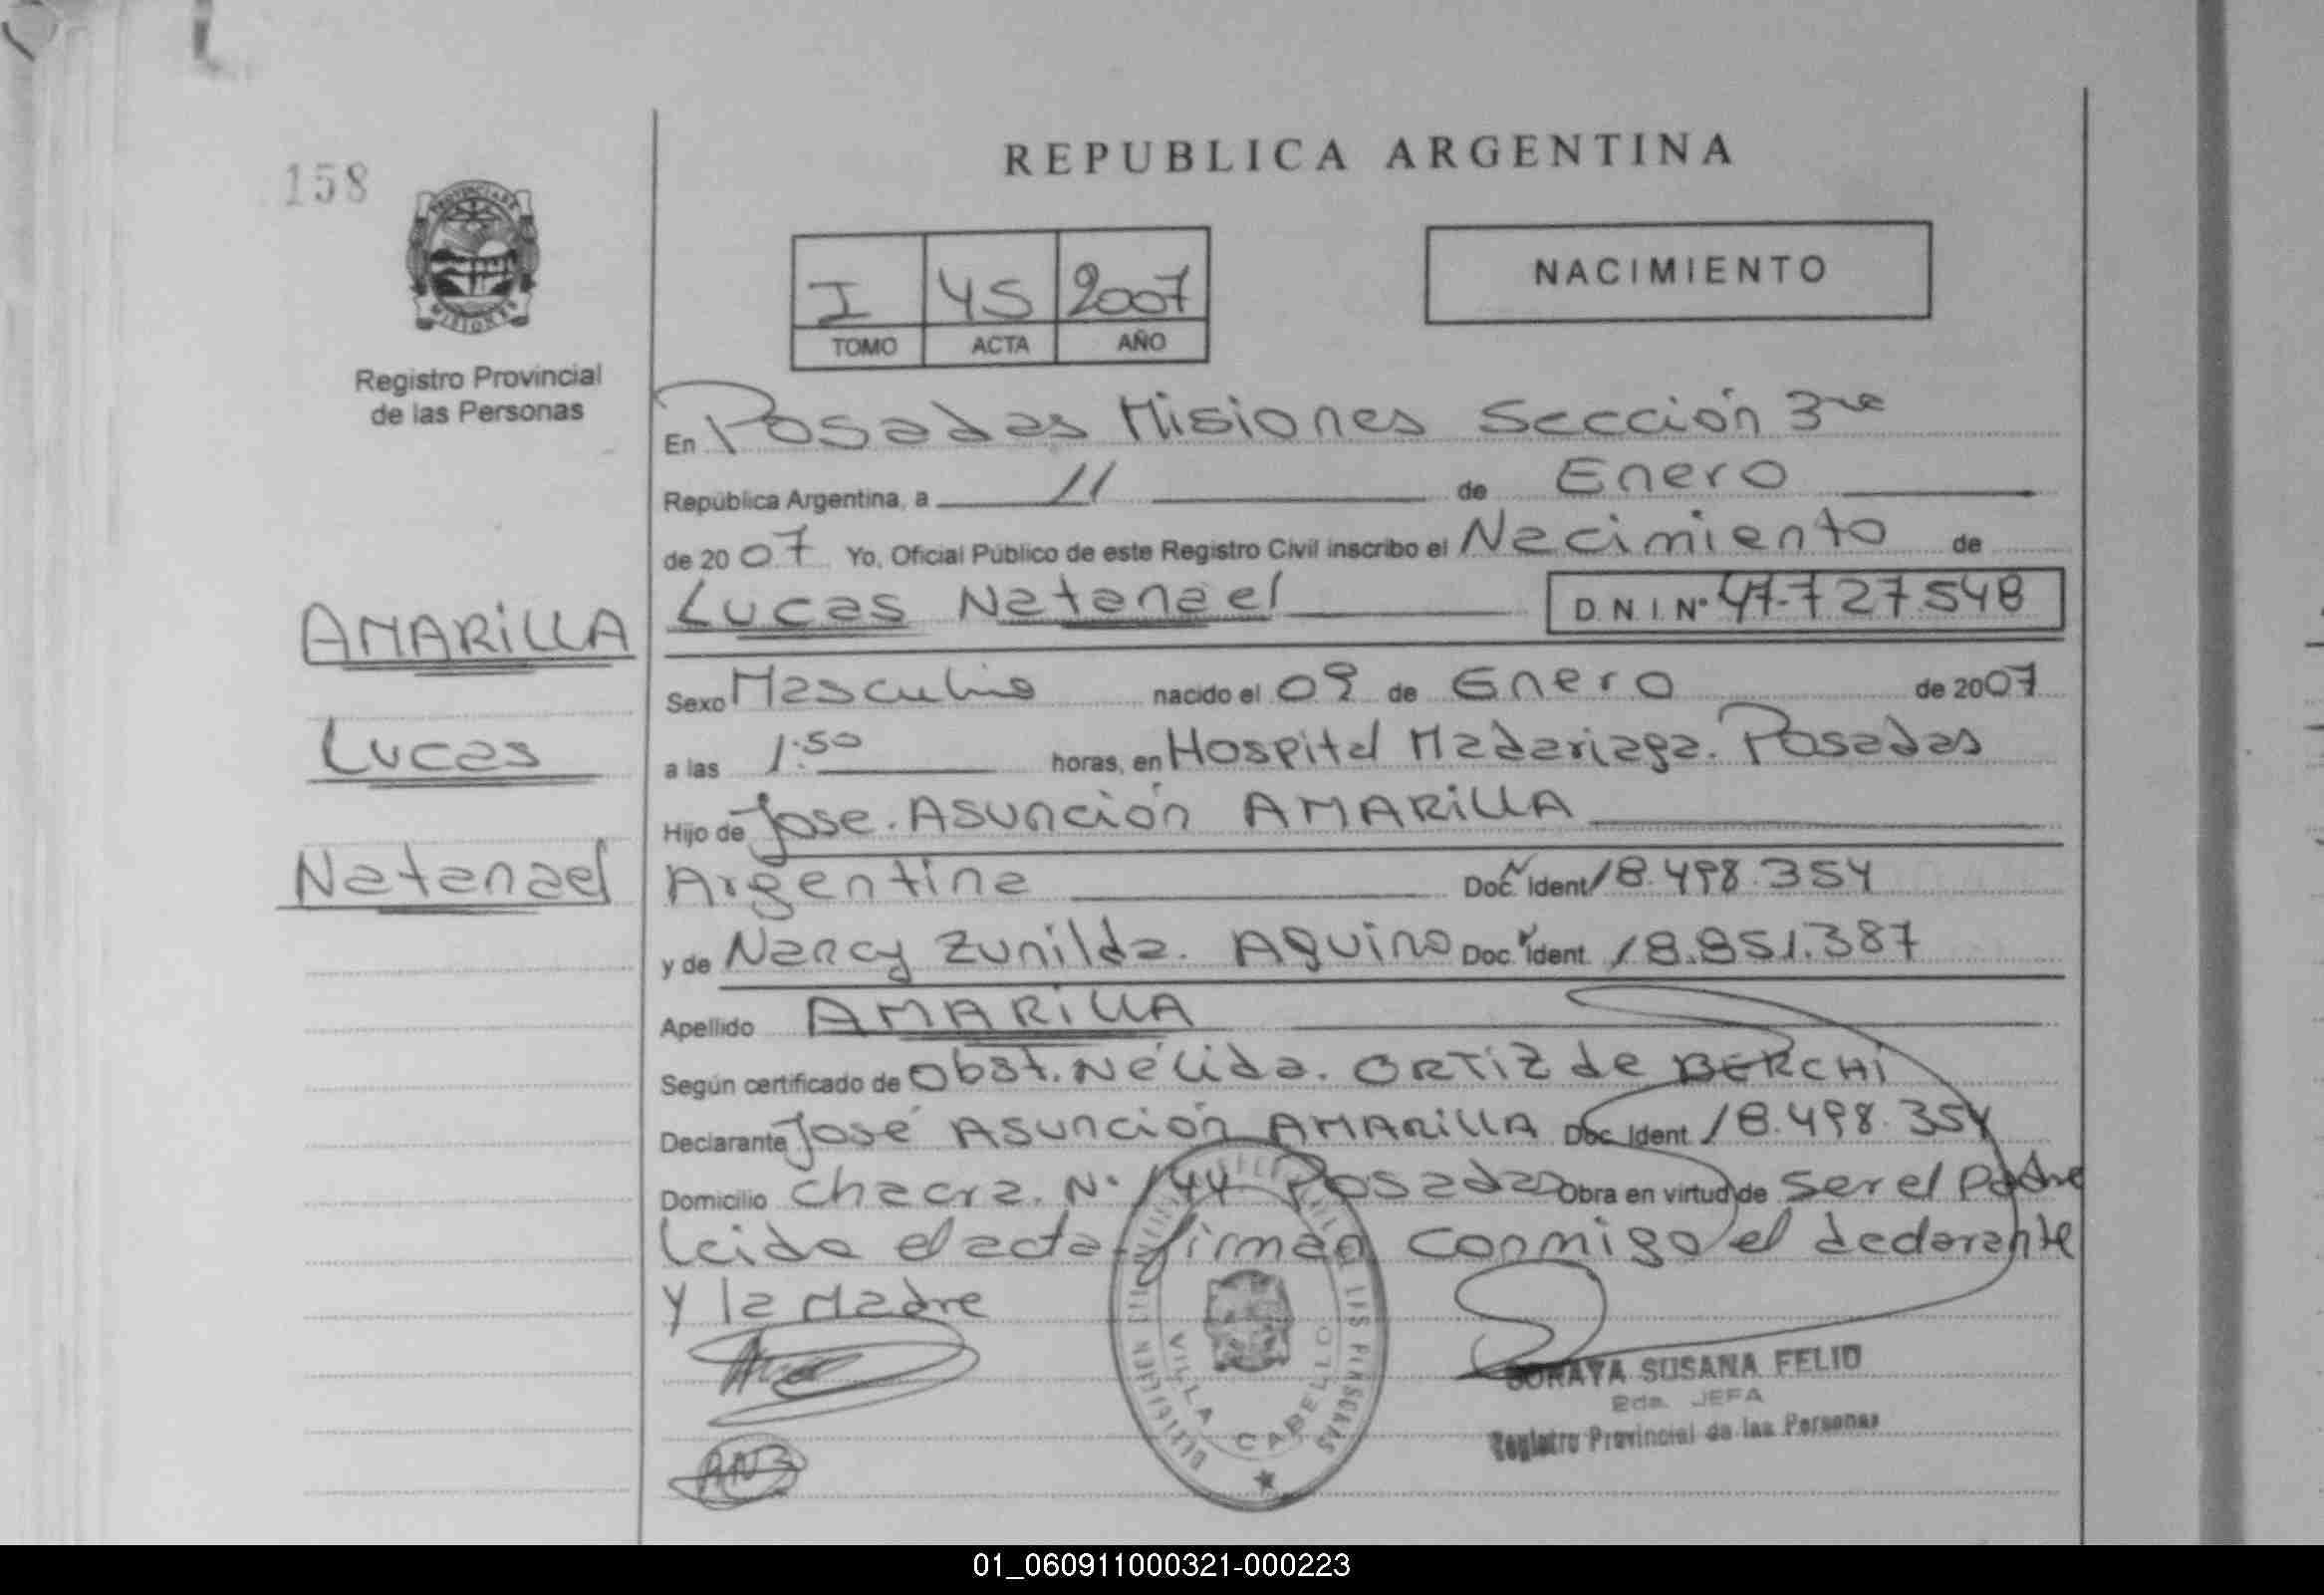 158
REPUBLICA ARGENTINA
NACIMIENTO
I 45 2007
TOMO ACTA AÑO
Registro Provincial
de las Personas
En Posadas Misiones Sección 3ra
República Argentina, a 11 de Enero
de 2007 Yo, Oficial Público de este Registro Civil inscribo el Nacimiento de
AMARILLA
Lucas Natanael D.N.I. Nº 47.727.548
Sexo Masculino nacido el 09 de Enero de 2007
Lucas
a las 1:50 horas, en Hospital Madariaga. Posadas
Hijo de Jose. Asunción AMARILLA
Natanael
Argentina Doc. Ident 18.498.354
y de Nancy Zunilda. Aquino Doc. Ident. 18.851.387
Apellido AMARILLA
Según certificado de Obst. Nélida. ORTIZ de BERCHI
Declarante José Asunción AMARILLA Doc. Ident 18.498.354
Domicilio chacra. Nº 144 Posadas Obra en virtud de Ser el Padre
leida el acta firman conmigo el declarante
y la Madre
VILLA CABELLO
SORAYA SUSANA FELIU
JEFA
Registro Provincial de las Personas
01_060911000321-000223